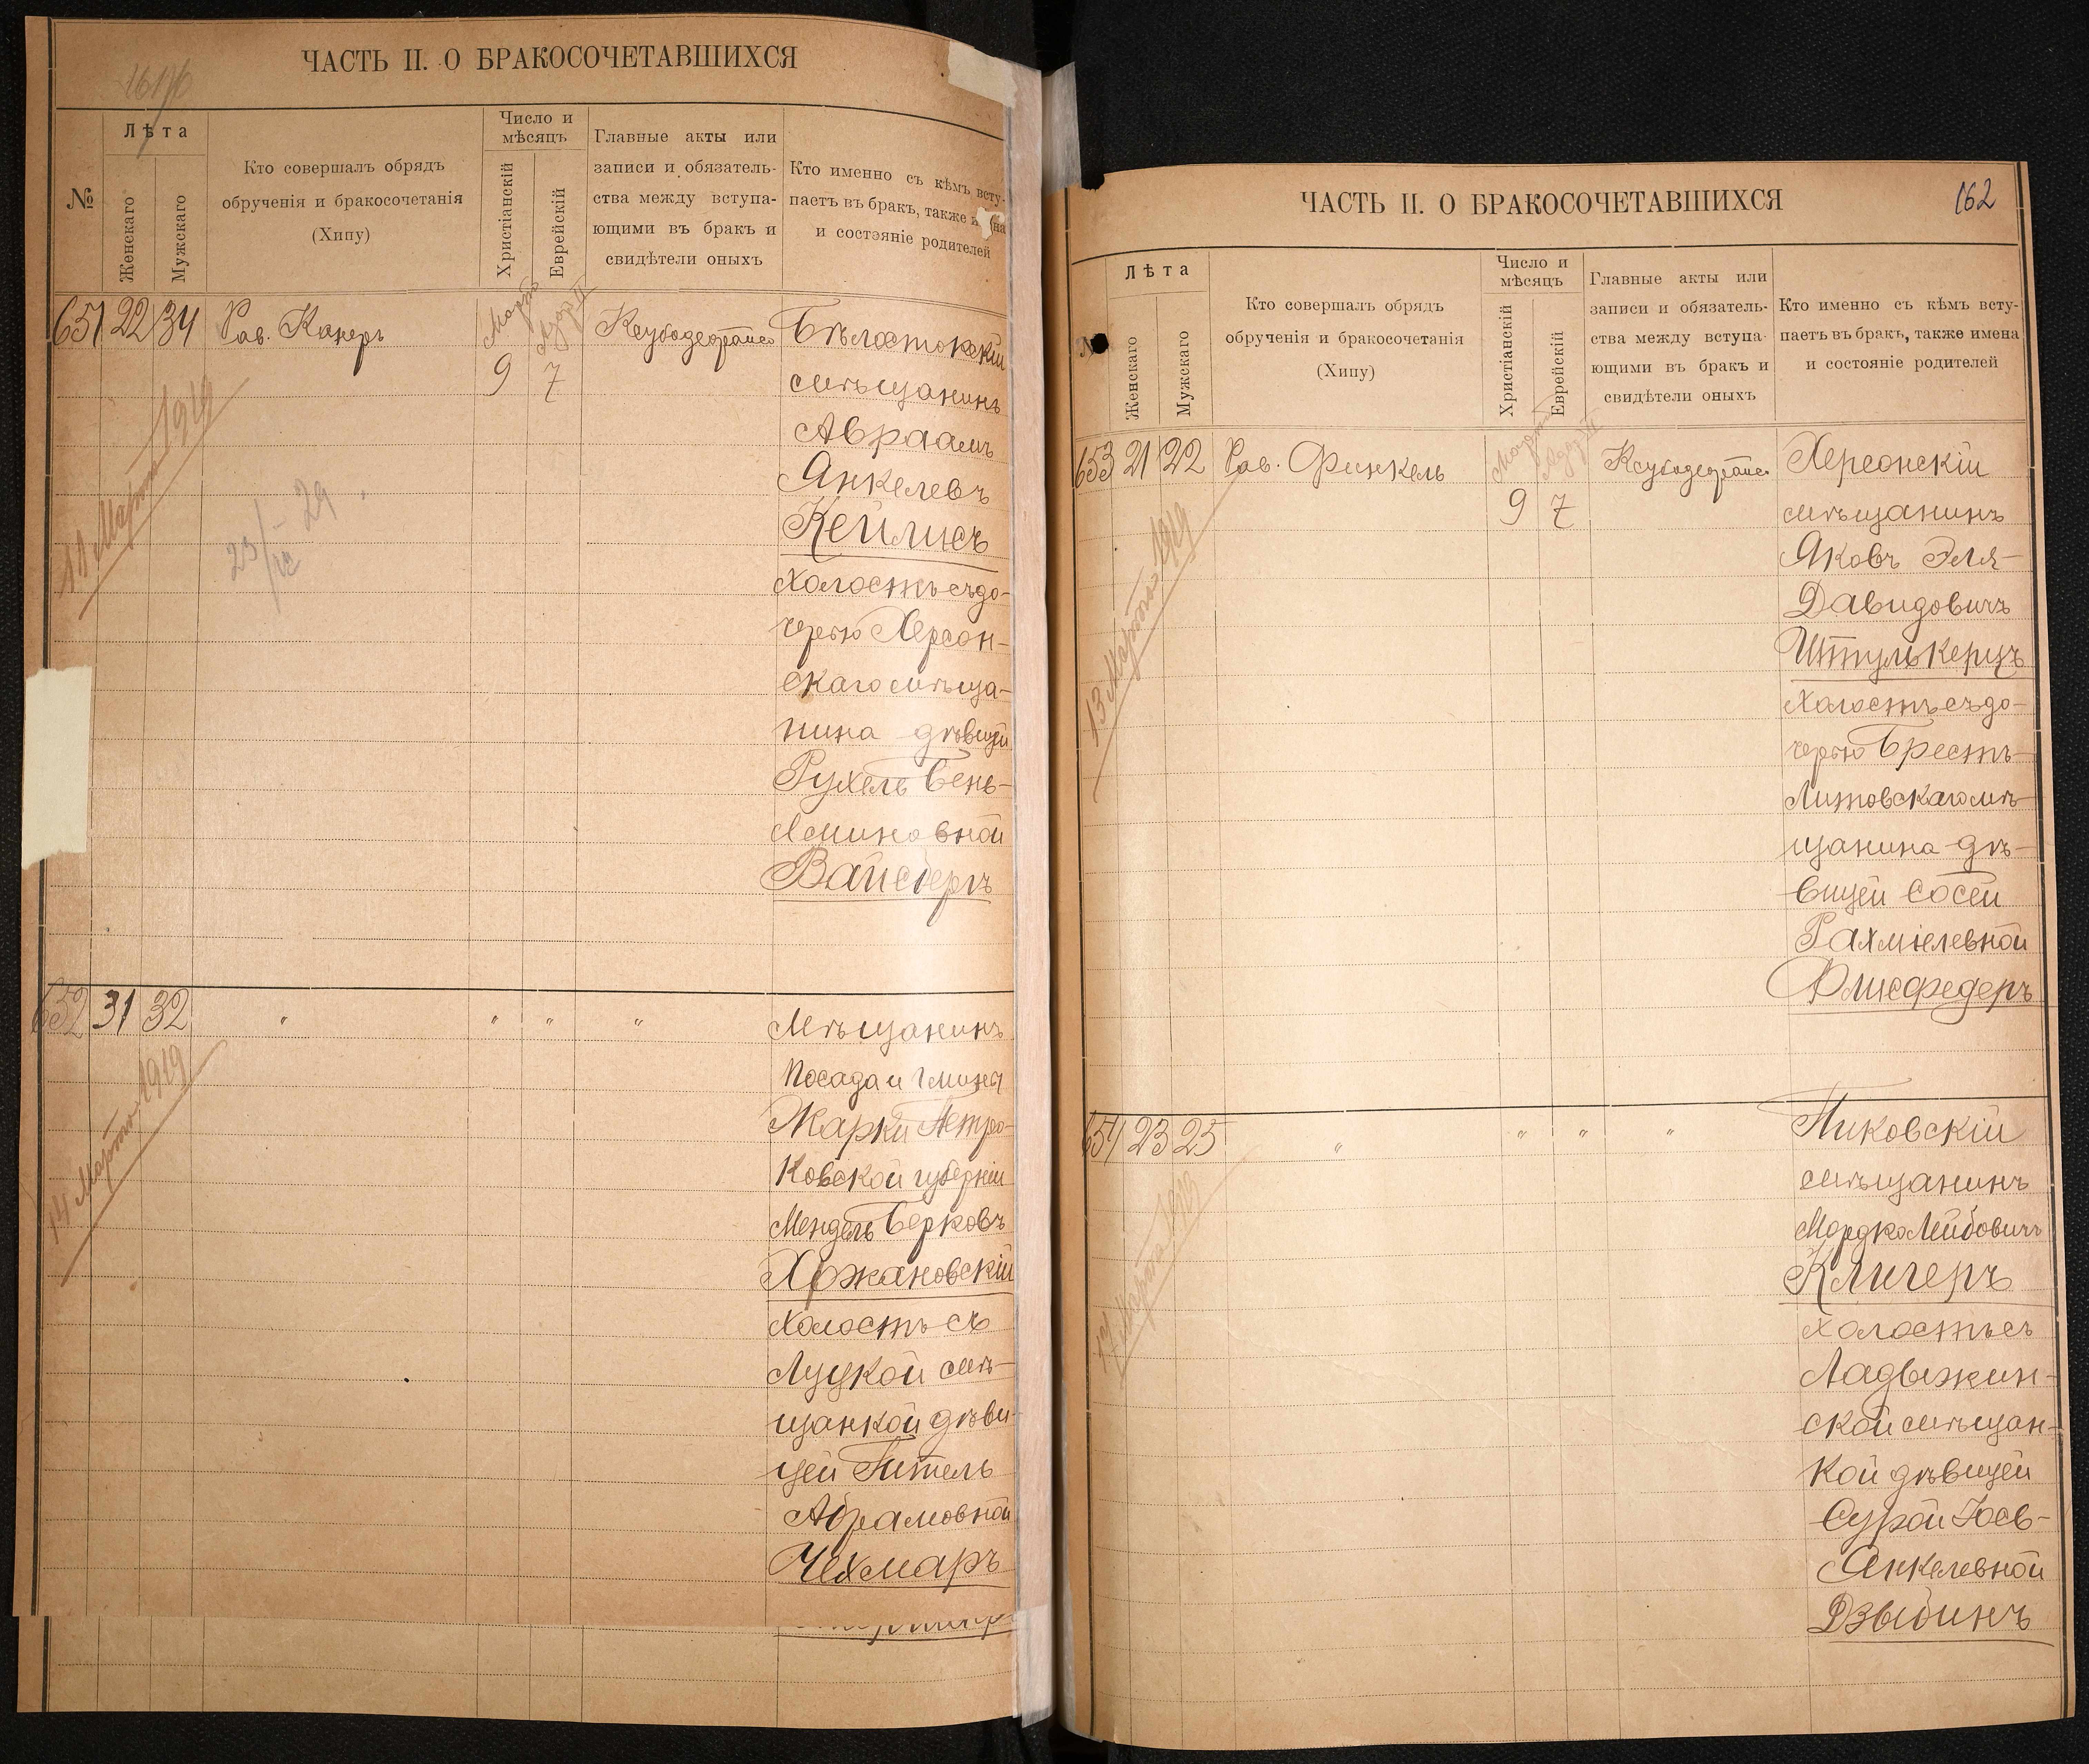 ЧАСТЬ II. О БРАКОСОЧЕТАВШИХСЯ
№
Лѣта
Женскаго
Мужскаго
Кто совершалъ обрядъ
обрученія и бракосочетанія
(Хипу)
Число и
мѣсяцъ
Христіанскій
Еврейскій
Главные акты или
записи и обязатель-
ства между вступа-
ющими въ бракъ и
свидѣтели оныхъ
Кто именно съ кѣмъ всту-
паетъ въ бракъ, также
и состояніе родителей
651 22 34 Рав. Канеръ
Мартъ
Адаръ II
9 7
11 Марта 1919
Бѣлостокскій
мѣщанинъ
Авраамъ
Янкелевъ
Кейлисъ
холостъ съ до-
черью Херсон-
скаго мѣща-
нина дѣвицей
Рухель Бень-
яминовной
Вайсбергъ
652 31 32 " " " "
14 Марта 1919
Мѣщанинъ
посада и гмины
Жарки Петро-
ковской губерніи
Мендель Берковъ
Хржановскій
холостъ съ
Луцкой мѣ-
щанкой дѣви-
цей Гитель
Абрамовной
Чехмаръ
ЧАСТЬ II. О БРАКОСОЧЕТАВШИХСЯ
162
Лѣта
Женскаго
Мужскаго
Кто совершалъ обрядъ
обрученія и бракосочетанія
(Хипу)
Число и
мѣсяцъ
Христіанскій
Еврейскій
Главные акты или
записи и обязатель-
ства между вступа-
ющими въ бракъ и
свидѣтели оныхъ
Кто именно съ кѣмъ всту-
паетъ въ бракъ, также имена
и состояніе родителей
653 21 22 Рав. Финкель
Мартъ
Адаръ II
9 7
13 Марта 1919
Херсонскій
мѣщанинъ
Яковъ Эля-
Давидовичъ
Штулькерцъ
холостъ съ до-
черью Брестъ-
Литовскаго мѣ-
щанина дѣ-
вицей Сосей
Рахміелевной
Флисфедеръ
654 23 25 " " " "
17 Марта 1919
Пиковскій
мѣщанинъ
Мордко Лейбовичъ
Клигеръ
холостъ съ
Ладыжин-
ской мѣщан-
кой дѣвицей
Сурой Хаей-
Янкелевной
Дзыбинъ